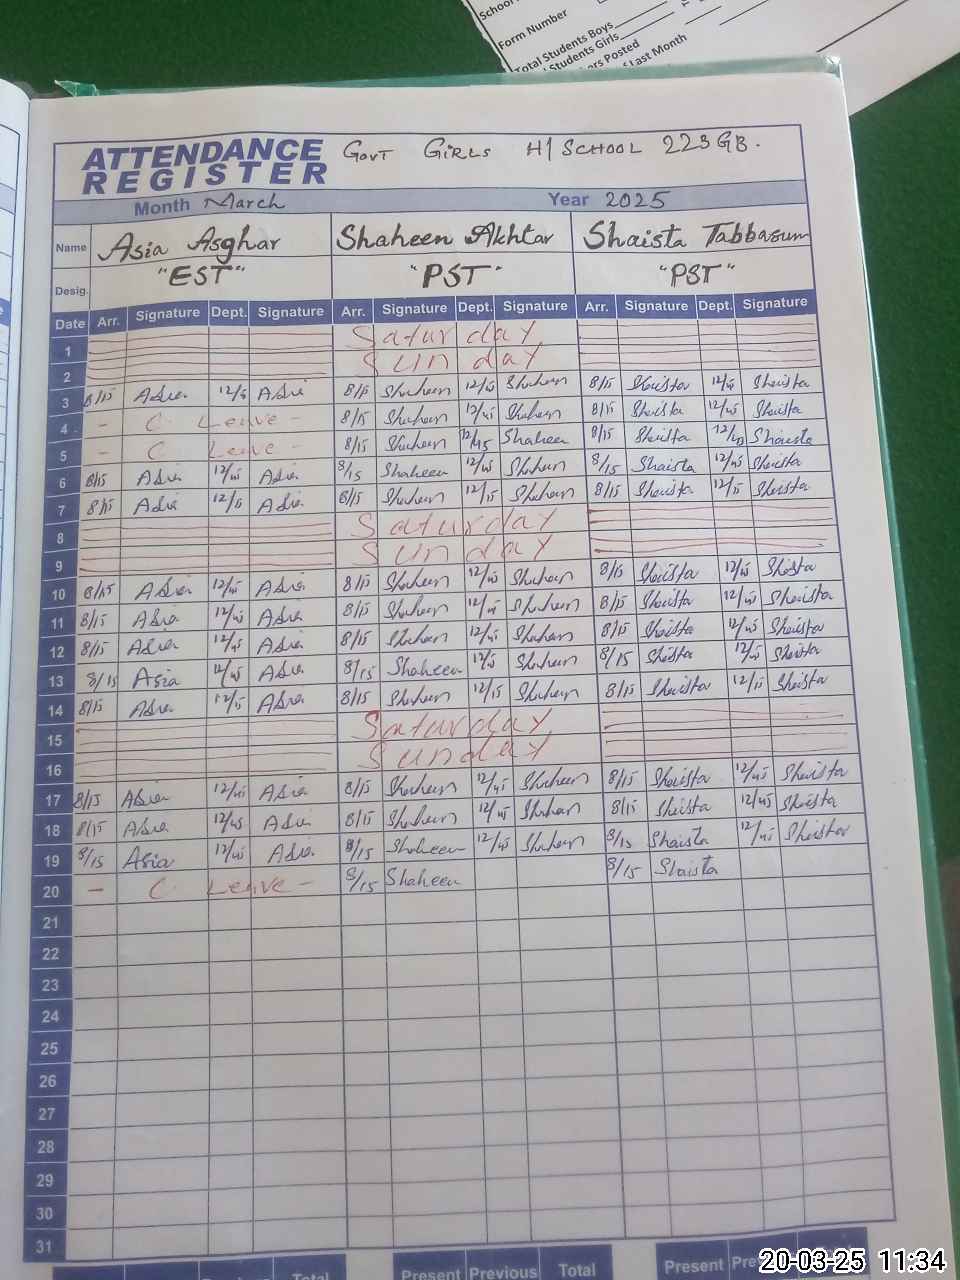 School
Form Number
Total Students Boys
Students Girls
ers Posted
f Last Month
ATTENDANCE REGISTER GOVT GIRLS H/SCHOOL 223 GB.
Month March Year 2025
Name Asia Asghar Shaheen Akhtar Shaista Tabbasum
Desig. "EST" "PST" "PST"
Date Arr. Signature Dept. Signature Arr. Signature Dept. Signature Arr. Signature Dept. Signature
1 Saturday
2 Sunday
3 8/15 Asia Asia 8/15 Shaheen 12/45 Shaheen 8/15 Shaista 12/45 Shaista
4 - C Leave - 8/15 Shaheen 12/45 Shaheen 8/15 Shaista 12/45 Shaista
5 - C Leave - 8/15 Shaheen 12/45 Shaheen 8/15 Shaista Shaista
6 8/15 Asia 12/45 Asia 8/15 Shaheen 12/45 Shaheen 8/15 Shaista 12/45 Shaista
7 8/15 Asia 12/15 Asia 8/15 Shaheen 12/15 Shaheen 8/15 Shaista 12/15 Shaista
8 Saturday
9 Sunday
10 8/15 Asia 12/45 Asia 8/15 Shaheen 12/45 Shaheen 8/15 Shaista 12/45 Shaista
11 8/15 Asia 12/45 Asia 8/15 Shaheen 12/45 Shaheen 8/15 Shaista 12/45 Shaista
12 8/15 Asia 12/45 Asia 8/15 Shaheen 12/45 Shaheen 8/15 Shaista 12/45 Shaista
13 8/15 Asia 12/45 Asia 8/15 Shaheen 12/45 Shaheen 8/15 Shaista 12/45 Shaista
14 8/15 Asia 12/15 Asia 8/15 Shaheen 12/15 Shaheen 8/15 Shaista 12/15 Shaista
15 Saturday
16 Sunday
17 8/15 Asia 12/45 Asia 8/15 Shaheen 12/45 Shaheen 8/15 Shaista 12/45 Shaista
18 8/15 Asia 12/45 Asia 8/15 Shaheen 12/45 Shaheen 8/15 Shaista 12/45 Shaista
19 8/15 Asia 12/45 Asia 8/15 Shaheen 12/45 Shaheen 8/15 Shaista 12/45 Shaista
20 - C Leave - 8/15 Shaheen 8/15 Shaista
21
22
23
24
25
26
27
28
29
30
31
Total Present Previous Total Present
20-03-25 11:34